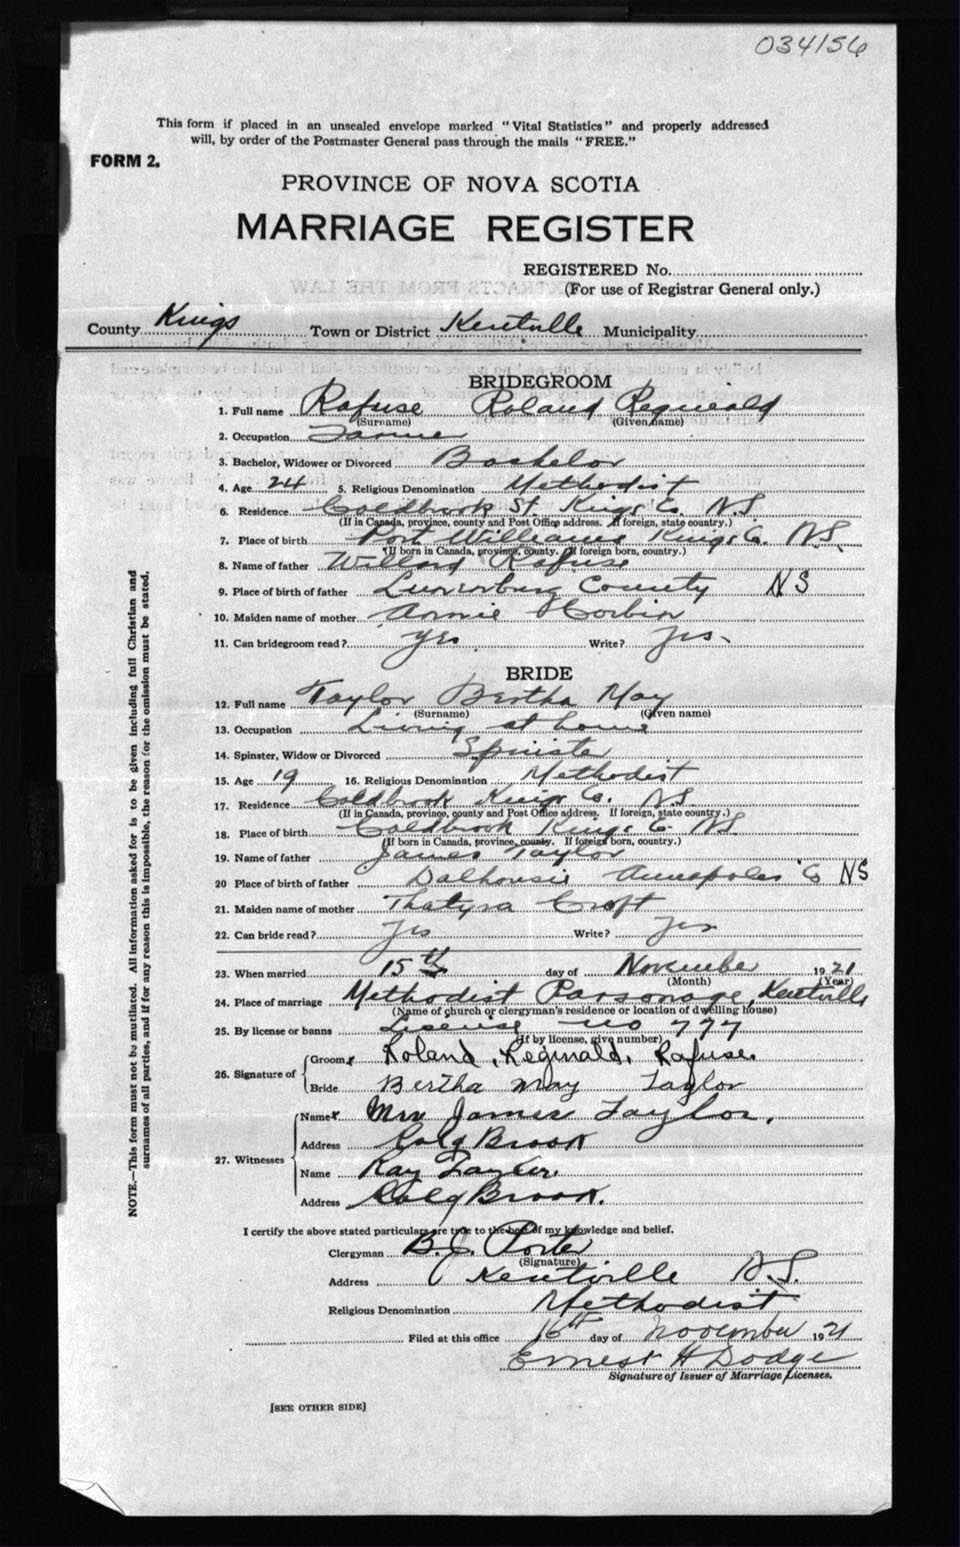 034156
This form if placed in an unsealed envelope marked "Vital Statistics" and properly addressed
will, by order of the Postmaster General pass through the mails "FREE."
FORM 2.
PROVINCE OF NOVA SCOTIA
MARRIAGE REGISTER
REGISTERED No.
(For use of Registrar General only.)
County Kings Town or District Kentville Municipality
BRIDEGROOM
1. Full name Rafuse Roland Reginald
(Surname) (Given name)
2. Occupation Farmer
3. Bachelor, Widower or Divorced Bachelor
4. Age 24 5. Religious Denomination Methodist
6. Residence Coldbrook St. Kings Co. N.S
(If in Canada, province, county and Post Office address. If foreign, state country.)
7. Place of birth Port Williams Kings Co. N.S.
(If born in Canada, province, county. If foreign born, country.)
8. Name of father Willard Rafuse
9. Place of birth of father Lunenburg County NS
10. Maiden name of mother Annie Corbin
11. Can bridegroom read? yes Write? Yes
BRIDE
12. Full name Taylor Bertha May
(Surname) (Given name)
13. Occupation Living at home
14. Spinster, Widow or Divorced Spinster
15. Age 19 16. Religious Denomination Methodist
17. Residence Coldbrook Kings Co. N.S.
(If in Canada, province, county and Post Office address. If foreign, state country.)
18. Place of birth Coldbrook Kings Co. NS
(If born in Canada, province, county. If foreign born, country.)
19. Name of father James Taylor
20 Place of birth of father Dalhousie Annapolis Co NS
21. Maiden name of mother Croft
22. Can bride read? Yes Write? Yes
23. When married 15th day of November 1921
(Month) (Year)
24. Place of marriage Methodist Parsonage, Kentville
(Name of church or clergyman's residence or location of dwelling house)
25. By license or banns License no 777
(If by license, give number)
26. Signature of
Groom Roland, Reginald, Rafuse
Bride Bertha May Taylor
27. Witnesses
Name Mrs James Taylor.
Address Cold Brook
Name Ray Taylor.
Address Cold Brook.
I certify the above stated particulars are true to the best of my knowledge and belief.
Clergyman B.J. Porter
(Signature)
Address Kentville N.S.
Religious Denomination Methodist
Filed at this office 16th day of November 1921
Ernest H Dodge
Signature of Issuer of Marriage Licenses.
[SEE OTHER SIDE]
NOTE.—This form must not be mutilated. All information asked for is to be given including full Christian and
surnames of all parties, and if for any reason this is impossible, the reason for the omission must be stated.